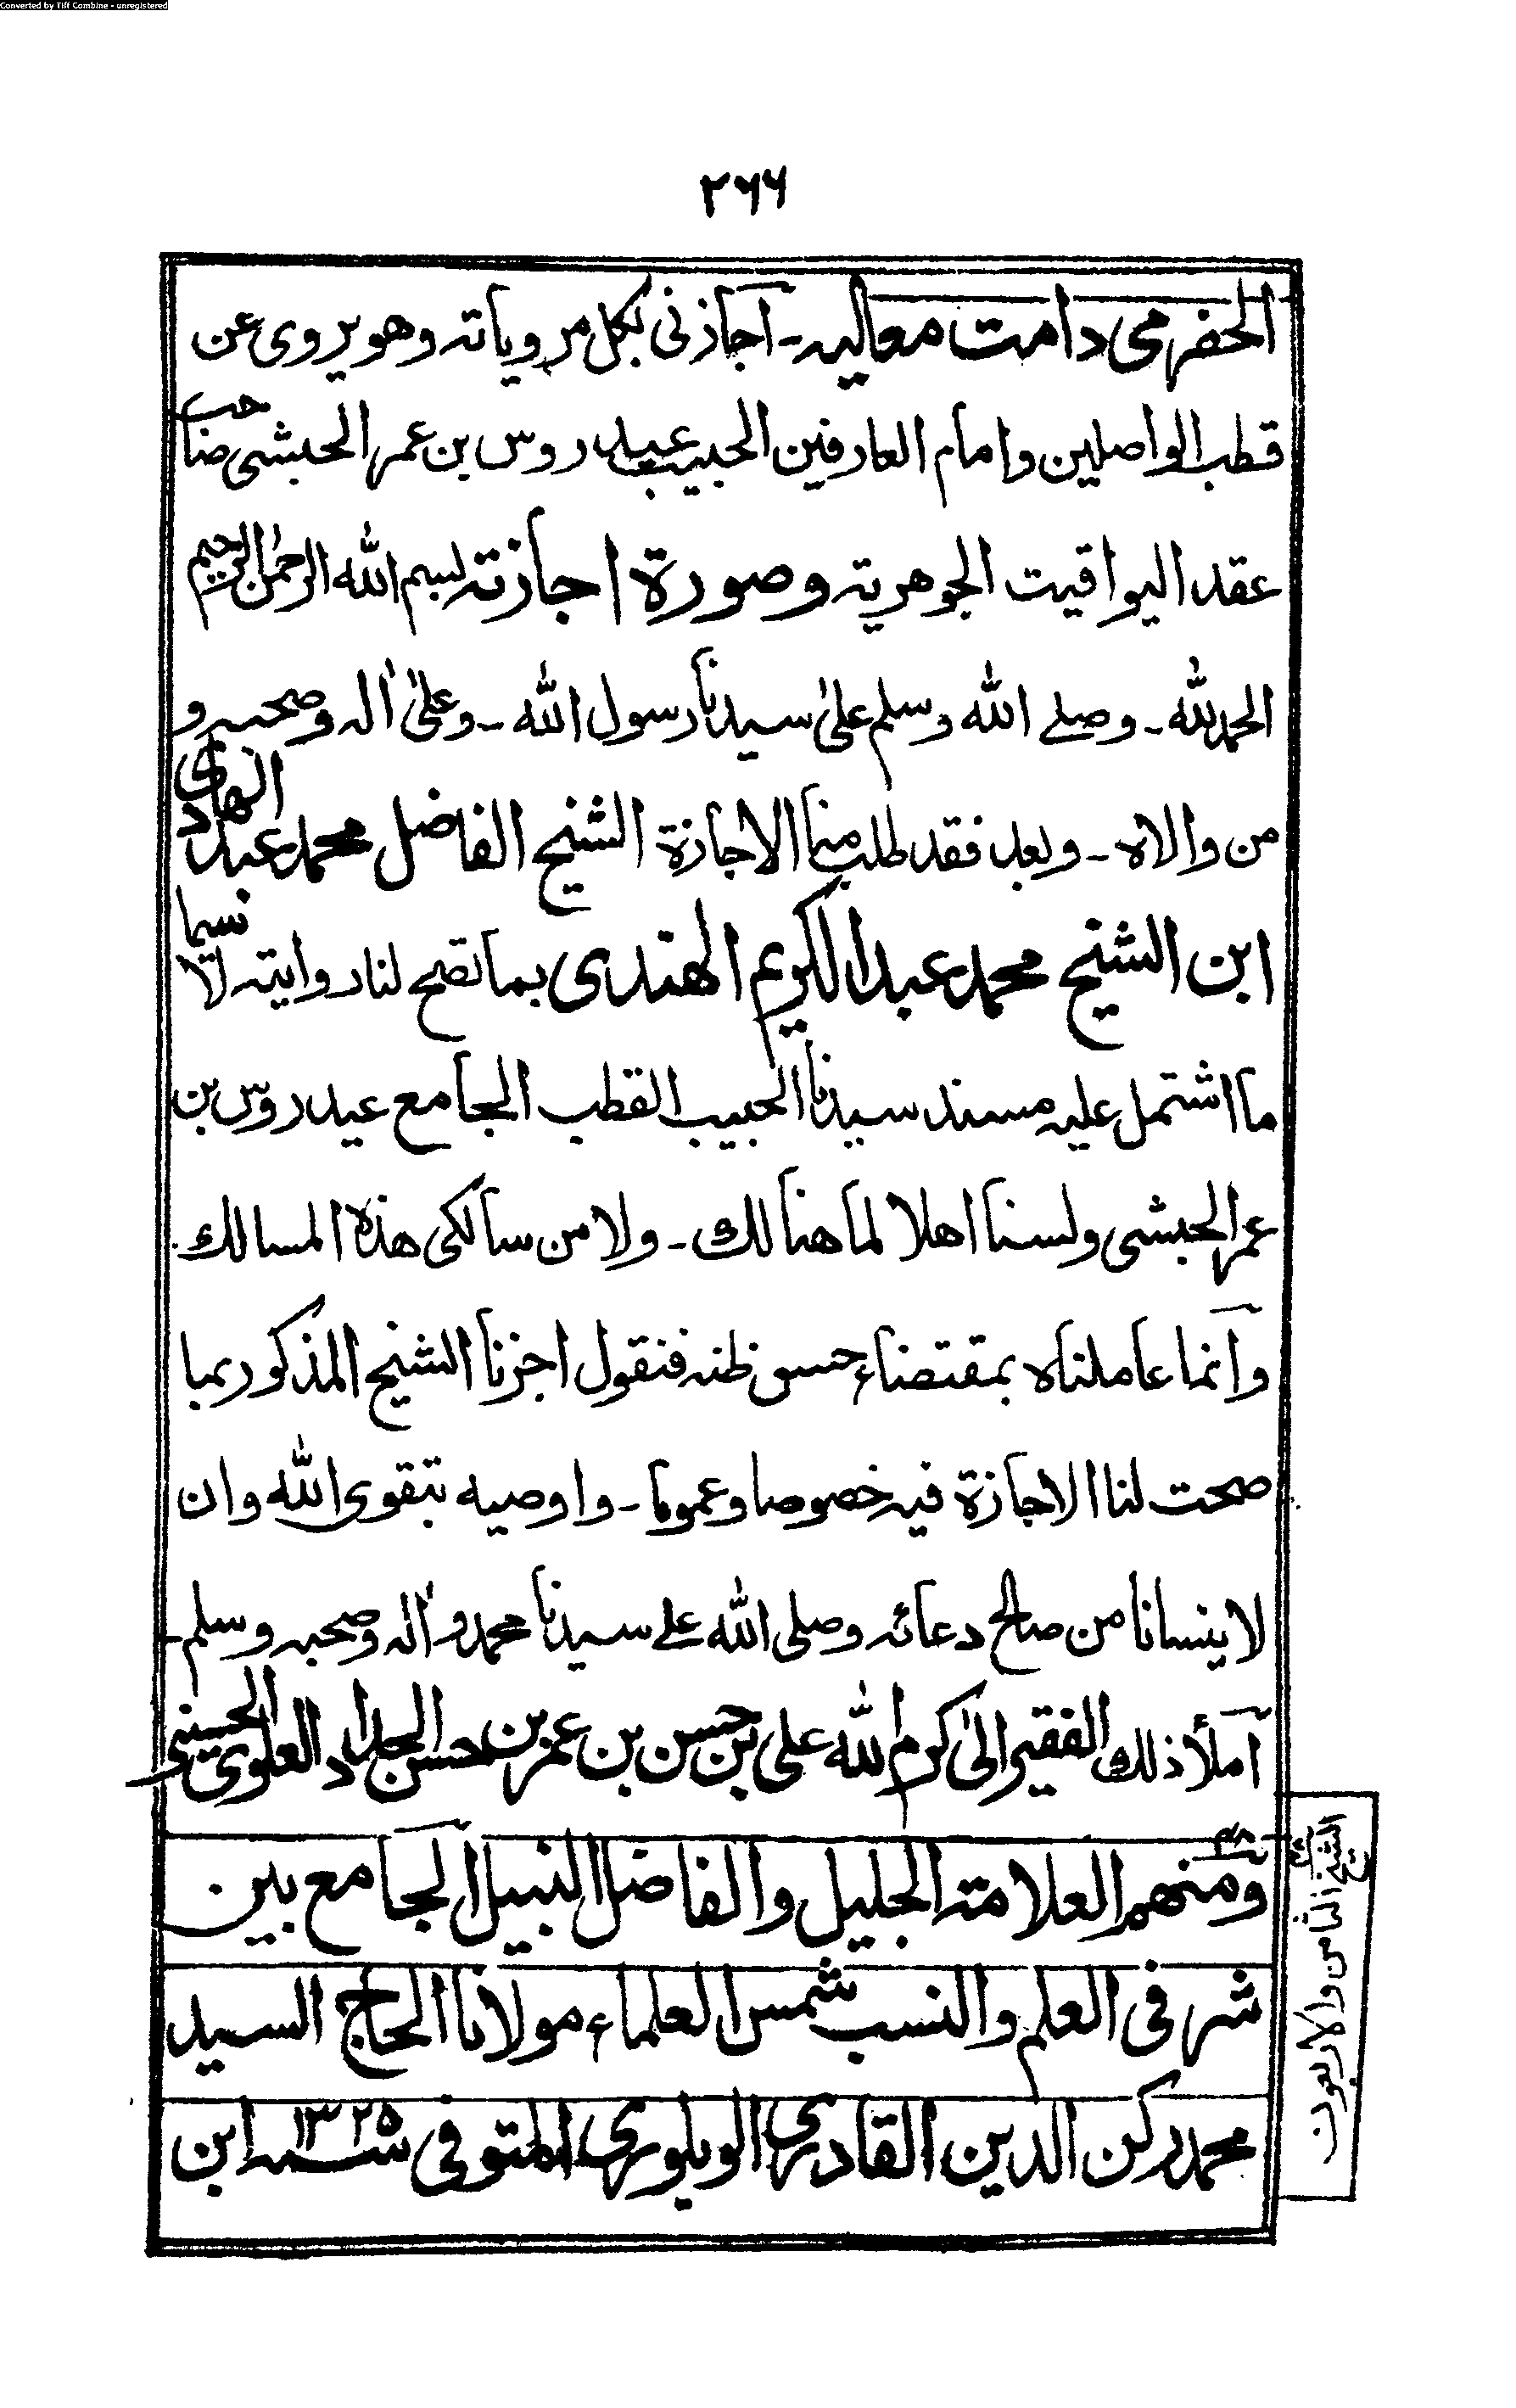 Converted by Tiff Combine - unregistered
٢٦٦
الحضرمی دامت معالیہ - اجازنی بکل مرویاتہ وھو یروی عن
قطب الواصلین وامام العارفین الحبیب عیدروس بن عمر الحبشی صاحب
عقد الیواقیت الجوھریۃ وصورۃ اجازتہ بسم اللہ الرحمٰن الرحیم
الحمد للہ - وصلے اللہ وسلم علیٰ سیدنا رسول اللہ - وعلیٰ اٰلہ وصحبہ و
من والاہ - وبعد فقد طلب منا الاجازۃ الشیخ الفاضل محمد عبد الھادی
ابن الشیخ محمد عبد الکریم الھندی بما تصح لنا روایتہ لا سیما
ما اشتمل علیہ مسند سیدنا الحبیب القطب الجامع عیدروس بن
عمر الحبشی ولسنا اھلا لما ھنالک - ولا من سالکی ھذہ المسالک
وانما عاملناہ بمقتضاء حسن ظنہ فنقول اجزنا الشیخ المذکور بما
صحت لنا الاجازۃ فیہ خصوصا وعموما - واوصیہ بتقوی اللہ وان
لا ینسانا من صالح دعائہ وصلی اللہ علے سیدنا محمد واٰلہ وصحبہ وسلم -
آملأ ذلک الفقیر الیٰ کرم اللہ علی بن حسن بن عمر بن حسن الحداد العلوی الحسینی
ومنھم العلامۃ الجلیل والفاضل النبیل الجامع بین
شرفی العلم والنسب شمس العلماء مولانا الحاج السید
محمد رکن الدین القادری الویلوری المتوفی سنہ ١٣٢٥ ابن
الشیخ الثامن والاربعون